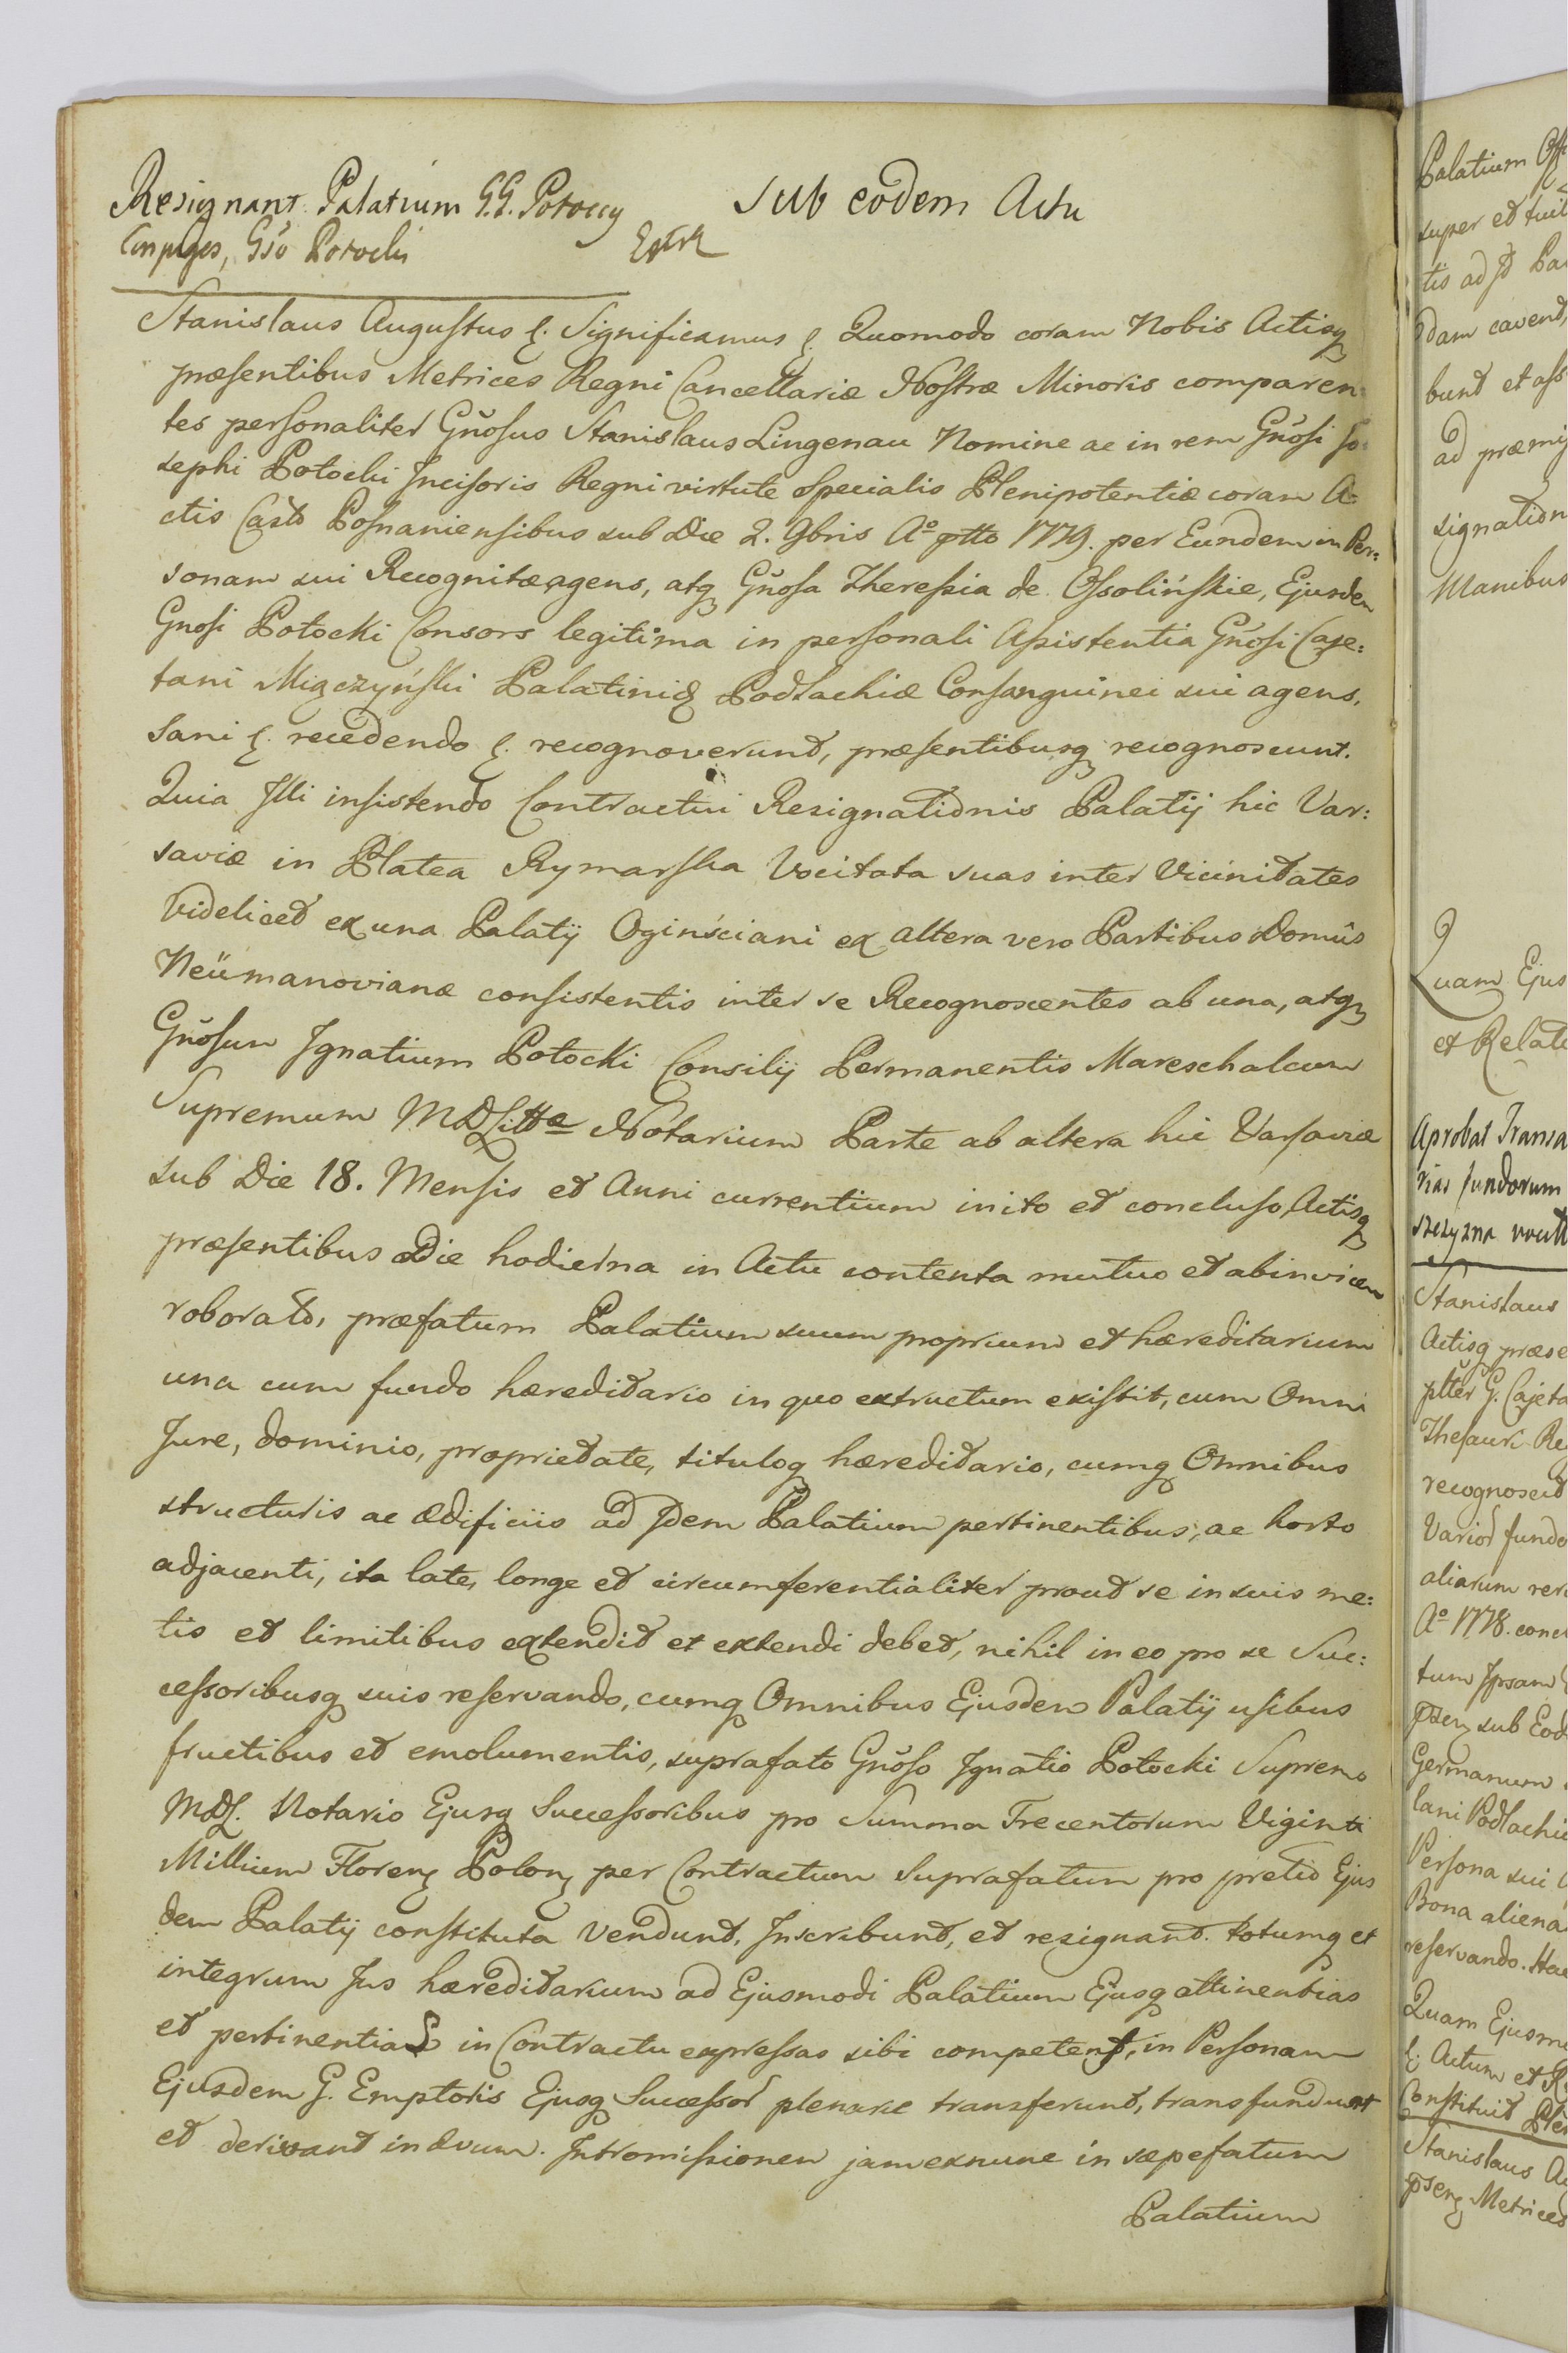 Resignant Palatium G.G. Potoccy
Conjuges, Gso Potocki
Extr
Sub eodem Actu
Stanislaus Augustus &. Significamus &. Quomodo coram Nobis Actisq
præsentibus Metrices Regni Cancellariæ Nostræ Minoris comparen:
tes personaliter Gnosus Stanislaus Lingenau Nomine ac in rem Gnosi Jo:
sephi Potocki Incisoris Regni virtute Specialis Plenipotentiæ coram A:
ctis Castr Posnaniensibus sub Die 2. 9bris Aº ptto 1779. per Eundem in Per:
sonam sui Recognitæ agens, atq Gnosa Theressia de Ossolińskie, Ejusdem
Gnosi Potocki Consors legitima in personali Assistentia Gnosi Caje:
tani Miączyński Palatinid Podlachiæ Consanguinei sui agens,
Sani &. recedendo &. recognoverunt, præsentibusq recognoscunt.
Quia Illi insistendo Contractui Resignationis Palatij hic Var:
saviæ in Platea Rymarska Vocitata suas inter Vicinitates
Videlicet ex una Palatij Oginściani ex altera vero Partibus Domûs
Neümanovianæ consistentis inter se Recognoscentes ab una, atq
Gnosum Ignatium Potocki Consilij Permanentis Mareschalcum
Supremum MDLittæ Notarium Parte ab altera hic Varsaviæ
sub Die 18. Mensis et Anni currentium inito et concluso, Actisq
præsentibus Die hodierna in Actu contenta mutuo et abinvicem
roborato, præfatum Palatium suum proprium et hæreditarium
una cum fundo hæreditario in quo extructum existit, cum Omni
Jure, dominio, proprietate, tituloq hæreditario, cumq Omnibus
structuris ac ædificiis ad Idem Palatium pertinentibus, ac horto
adjacenti, ita late, longe et circumferentialiter prout se in suis me:
tis et limitibus extendit et extendi debet, nihil in eo pro se Suc:
cessoribusq suis reservando, cumq Omnibus Ejusdem Palatij usibus
fructibus et emolumentis, suprafato Gnoso Ignatio Potocki Supremo
MDL. Notario Ejusq Successoribus pro Summa Trecentorum Viginti
Millium Floren Polon per Contractum Suprafatum pro pretio Ejus
dem Palatij constituta Vendunt, Inscribunt, et resignant. totumq et
integrum Jus hæreditarium ad Ejusmodi Palatium Ejusq attinentias
et pertinentias in Contractu expressas sibi competens, in Personam
Ejusdem G. Emptoris Ejusq Successor plenarie transferunt, transfundunt
et derivant in ævum. Intromissionem jam exnunc in sæpefatum
Palatium
Palatium
super et
tis ad
dam cavend
bunt et
ad præmi
signation
Manibus
Quam Ejus
et Relat
Aprobat Transa
rias fundorum
Stanislaus
Actisq præse
G. Cajeta
Thesauri Re
recognoscit
fundo
aliarum rer
Aº 1778. conc
tum Ipsam
sub Eod
Germanum
lani Podlachiæ
Persona sui
Bona aliena
reservando. Hae
Quam Ejusmo
&. Actum et R
Constituit Plen
Stanislaus Au
Metrices